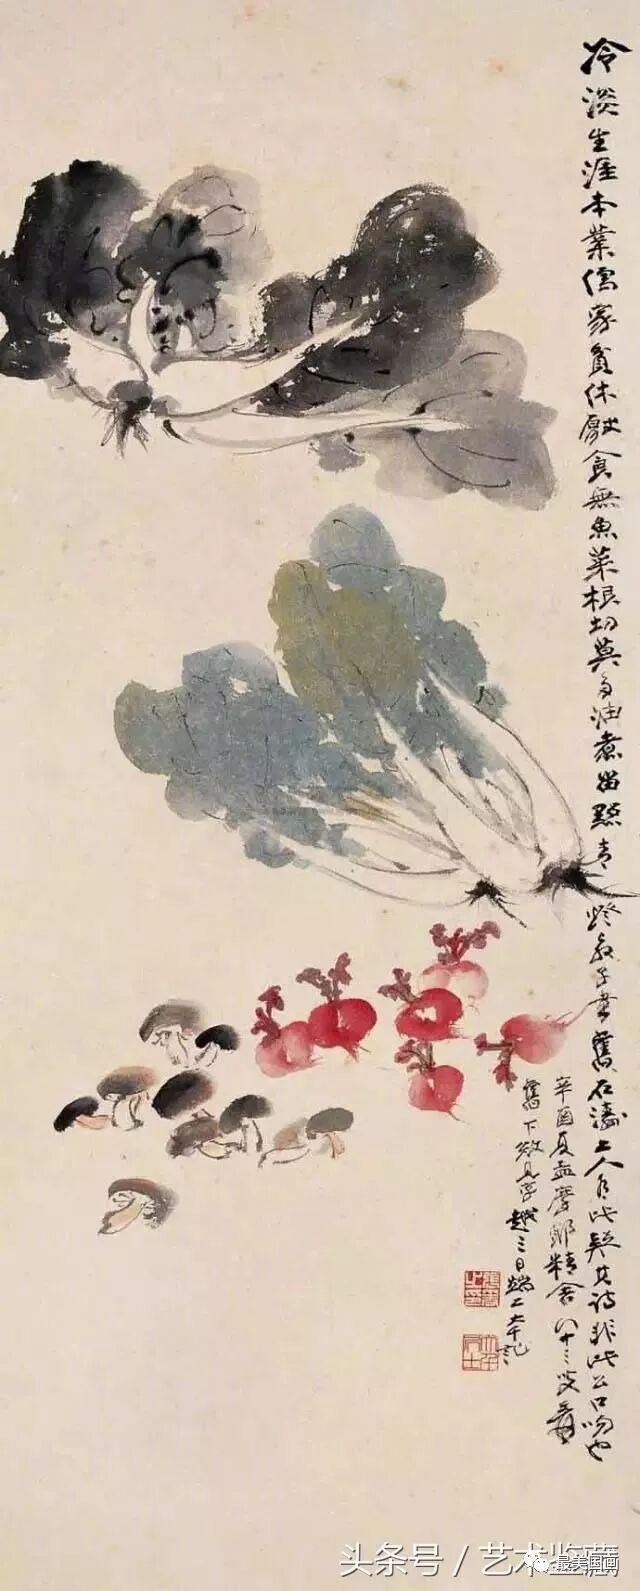 冷淡生涯本業儒家貧休厭食無魚菜根切莫多油煮留點青燈教子書舊石濤上人有此疑其詩非此公口吻也
辛酉夏孟摩耶精舍八十三叟爰
舊下效見字越三日端二大千記
頭條号 / 艺术监藏
最美国画